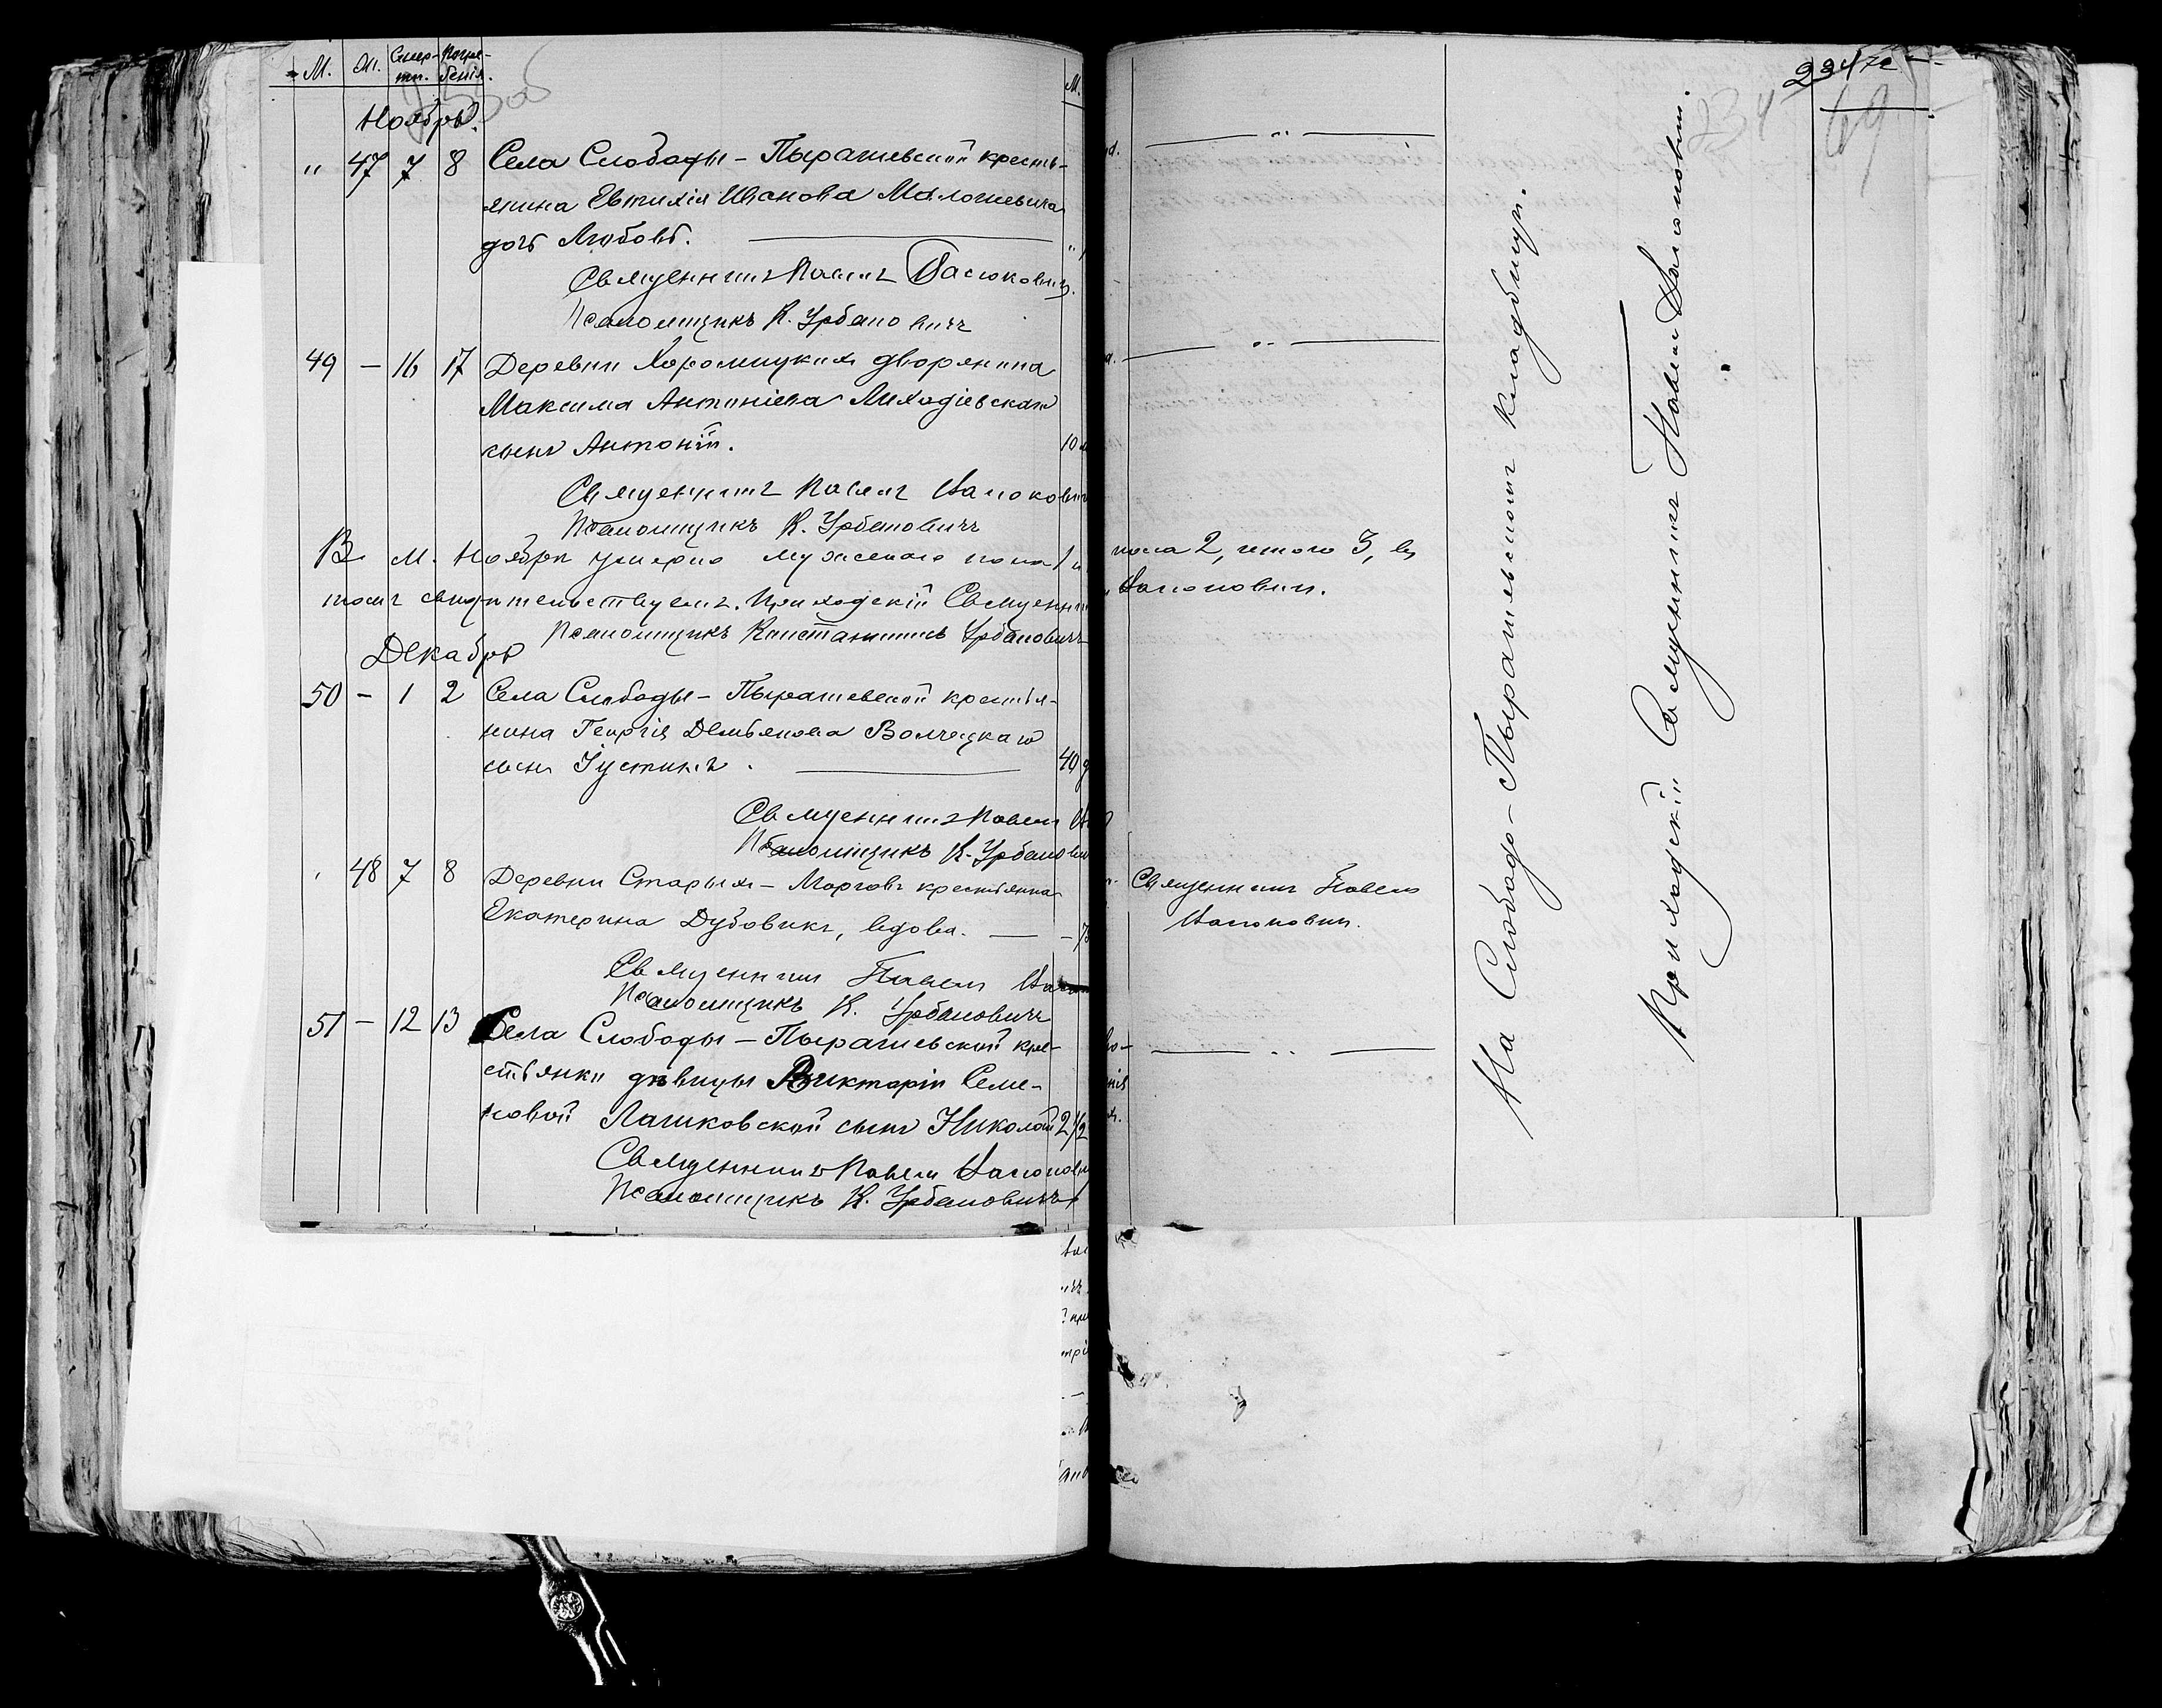 М. Ж. Смер- Погре-
ти. бенія.
Ноябрь.
" 47 7 8 Села Слободы - Пырашевской кресть-
янина Евтихія Иванова Малошевича
дочь Любовь.
Священникъ Павелъ
Псаломщикъ К. Урбановичъ
49 - 16 17 Деревни Хоромицкихъ дворянина
Максима Антоніева
сынъ Антоній. 10
Священникъ Павелъ
Псаломщикъ К. Урбановичъ
В м. Ноябрѣ умерло мужескаго пола 1
томъ свидѣтельствуемъ. Приходскій Священни
Псаломщикъ Константинъ Урбановичъ
Декабрь
50 - 1 2 Села Слободы - Пырашевской крестья-
нина Георгія Демьянова
сынъ Іустинъ. 40
Священникъ Павелъ
Псаломщикъ К. Урбанови
48 7 8 Деревни Старыхъ - Морговъ крестьянка
Екатерина Дубовикъ, вдова.
Священникъ Павелъ
Псаломщикъ К. Урбановичъ
51 - 12 13 Села Слободы - Пырашевской кре-
стьянки дѣвицы Викторіи Семе-
новой Лашковской сынъ Николай 2 1/2
Священникъ Павелъ
Псаломщикъ К. Урбановичъ
М.
234
69
пола 2, итого 3, въ
Священникъ Павелъ
На Слободо - Пырашевскомъ кладбищѣ.
Приходскій Священникъ Павелъ